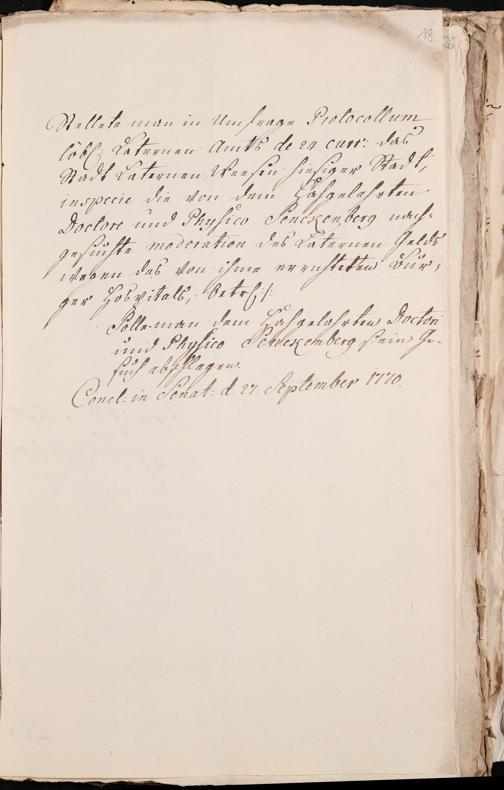 18
26
Stellete man in Umfrage Protocollum
löbl: Laternen Amts de 24 curr: das
Stadt Laternen Weesen hiesiger Stadt,
in specie die von dem Hochgelahrten
Doctore und Physico Senckenberg nach-
gesuchte moderation des Laternen Gelds
wegen des von ihme errichteten Bür-
ger Hospitals, betrf:
Solle man dem Hochgelahrten Doctori
und Physico Senckenberg sein Ge-
such abschlagen.
Concl: in Senat: d 27. September 1770.